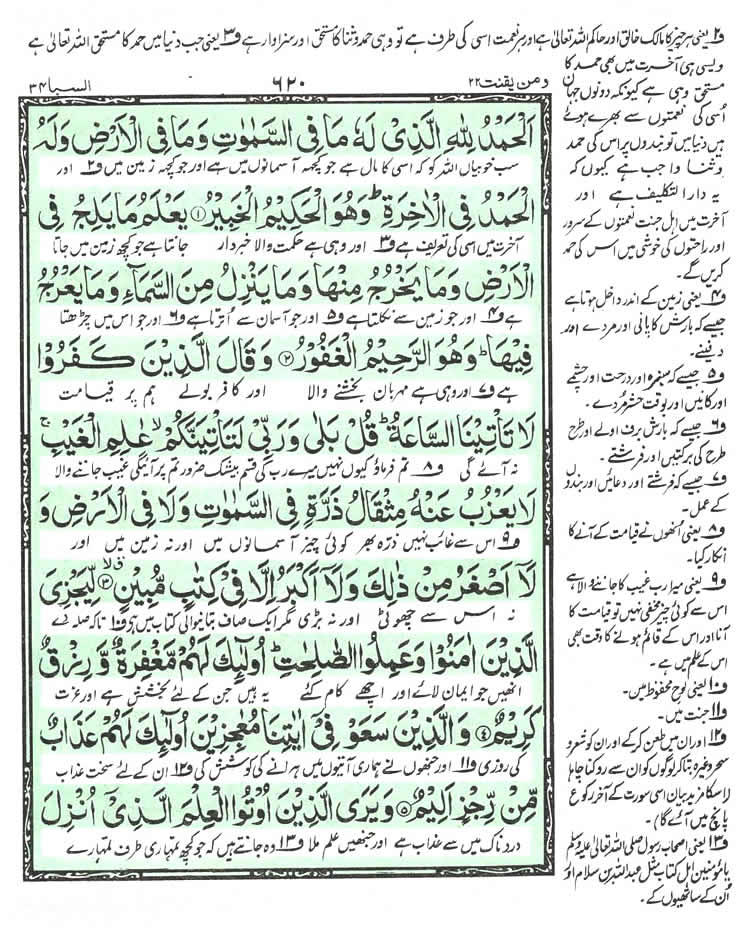 ف۲ یعنی ہر چیز کا مالک خالق اور حاکم اللہ تعالیٰ ہے اور ہر نعمت اسی کی طرف ہے تو وہی حمد و ثنا کا مستحق اور سزاوار ہے ف۳ یعنی جب دنیا میں حمد کا مستحق اللہ تعالیٰ ہے
ویسی ہی آخرت میں بھی حمد کا
مستحق وہی ہے کیونکہ دونوں جہان
اُسی کی نعمتوں سے بھرے ہوئے
ہیں دنیا میں تو بندوں پر اس کی حمد
و ثنا واجب ہے کیوں کہ
یہ دار التکلیف ہے اور
آخرت میں اہل جنت نعمتوں کے سرور
اور راحتوں کی خوشی میں اس کی حمد
کریں گے۔
ف۴ یعنی زمین کے اندر داخل ہوتا ہے
جیسے کہ بارش کا پانی اور مردے اور
دفینے۔
ف۵ جیسے کہ سبزہ اور درخت اور چشمے
اور کانیں اور بوقت حشر مُردے۔
ف۶ جیسے کہ بارش برف اولے اور طرح
طرح کی برکتیں اور فرشتے۔
ف۷ جیسے کہ فرشتے اور دعائیں اور بندوں
کے عمل۔
ف۸ یعنی اُنھوں نے قیامت کے آنے کا
انکار کیا۔
ف۹ یعنی میرا رب غیب کا جاننے والا ہے
اس سے کوئی چیز مخفی نہیں تو قیامت کا
آنا اور اس کے قائم ہونے کا وقت بھی
اس کے علم میں ہے۔
ف۱۰ یعنی لوح محفوظ میں۔
ف۱۱ جنت میں۔
ف۱۲ اور ان میں طعن کر کے اور ان کو شعر و
سحر وغیرہ بتا کر لوگوں کو ان سے روکنا چاہا
(اس کا مزید بیان اسی سورت کے آخر رکوع
پانچ میں آئے گا)۔
ف۱۳ یعنی اصحاب رسول صلی اللہ تعالیٰ علیہ وسلم
یا مؤمنین اہل کتاب مثل عبداللہ بن سلام اور
اُن کے ساتھیوں کے۔
ومن یقنت ۲۲ ۶۲۰ السبا ۳۴
اَلْحَمْدُ لِلّٰهِ الَّذِیْ لَهٗ مَا فِی السَّمٰوٰتِ وَمَا فِی الْاَرْضِ وَلَهُ
سب خوبیاں اللہ کو کہ اسی کا مال ہے جو کچھ آسمانوں میں ہے اور جو کچھ زمین میں ف۲ اور
الْحَمْدُ فِی الْاٰخِرَةِ ؕ وَهُوَ الْحَكِیْمُ الْخَبِیْرُ ۝۱ یَعْلَمُ مَا یَلِجُ فِی
آخرت میں اسی کی تعریف ہے ف۳ اور وہی ہے حکمت والا خبردار جانتا ہے جو کچھ زمین میں جاتا
الْاَرْضِ وَمَا یَخْرُجُ مِنْهَا وَمَا یَنْزِلُ مِنَ السَّمَآءِ وَمَا یَعْرُجُ
ہے ف۴ اور جو زمین سے نکلتا ہے ف۵ اور جو آسمان سے اُترتا ہے ف۶ اور جو اس میں چڑھتا
فِیْهَا ؕ وَهُوَ الرَّحِیْمُ الْغَفُوْرُ ۝۲ وَقَالَ الَّذِیْنَ كَفَرُوْا
ہے ف۷ اور وہی ہے مہربان بخشنے والا اور کافر بولے ہم پر قیامت
لَا تَاْتِیْنَا السَّاعَةُ ؕ قُلْ بَلٰی وَرَبِّیْ لَتَاْتِیَنَّكُمْ ۙ عٰلِمِ الْغَیْبِ ۚ
نہ آئے گی ف۸ تم فرماؤ کیوں نہیں میرے رب کی قسم بیشک ضرور تم پر آئیگی غیب جاننے والا
لَا یَعْزُبُ عَنْهُ مِثْقَالُ ذَرَّةٍ فِی السَّمٰوٰتِ وَلَا فِی الْاَرْضِ وَ
ف۹ اس سے غائب نہیں ذرّہ بھر کوئی چیز آسمانوں میں اور نہ زمین میں اور
لَاۤ اَصْغَرُ مِنْ ذٰلِكَ وَلَاۤ اَكْبَرُ اِلَّا فِیْ كِتٰبٍ مُّبِیْنٍ ۝۳ لِّیَجْزِیَ
نہ اس سے چھوٹی اور نہ بڑی مگر ایک صاف بتانیوالی کتاب میں ہے ف۱۰ تاکہ صلہ دے
الَّذِیْنَ اٰمَنُوْا وَعَمِلُوا الصّٰلِحٰتِ ؕ اُولٰٓئِكَ لَهُمْ مَّغْفِرَةٌ وَّرِزْقٌ
انھیں جو ایمان لائے اور اچھے کام کئے یہ ہیں جن کے لئے بخشش ہے اور عزت
كَرِیْمٌ ۝۴ وَالَّذِیْنَ سَعَوْ فِیْۤ اٰیٰتِنَا مُعٰجِزِیْنَ اُولٰٓئِكَ لَهُمْ عَذَابٌ
کی روزی ف۱۱ اور جنھوں نے ہماری آیتوں میں ہرانے کی کوشش کی ف۱۲ ان کے لئے سخت عذاب
مِّنْ رِّجْزٍ اَلِیْمٌ ۝۵ وَیَرَی الَّذِیْنَ اُوْتُوا الْعِلْمَ الَّذِیْۤ اُنْزِلَ
دردناک میں سے عذاب ہے اور جنھیں علم ملا ف۱۳ وہ جانتے ہیں کہ جو کچھ تمہاری طرف تمہارے